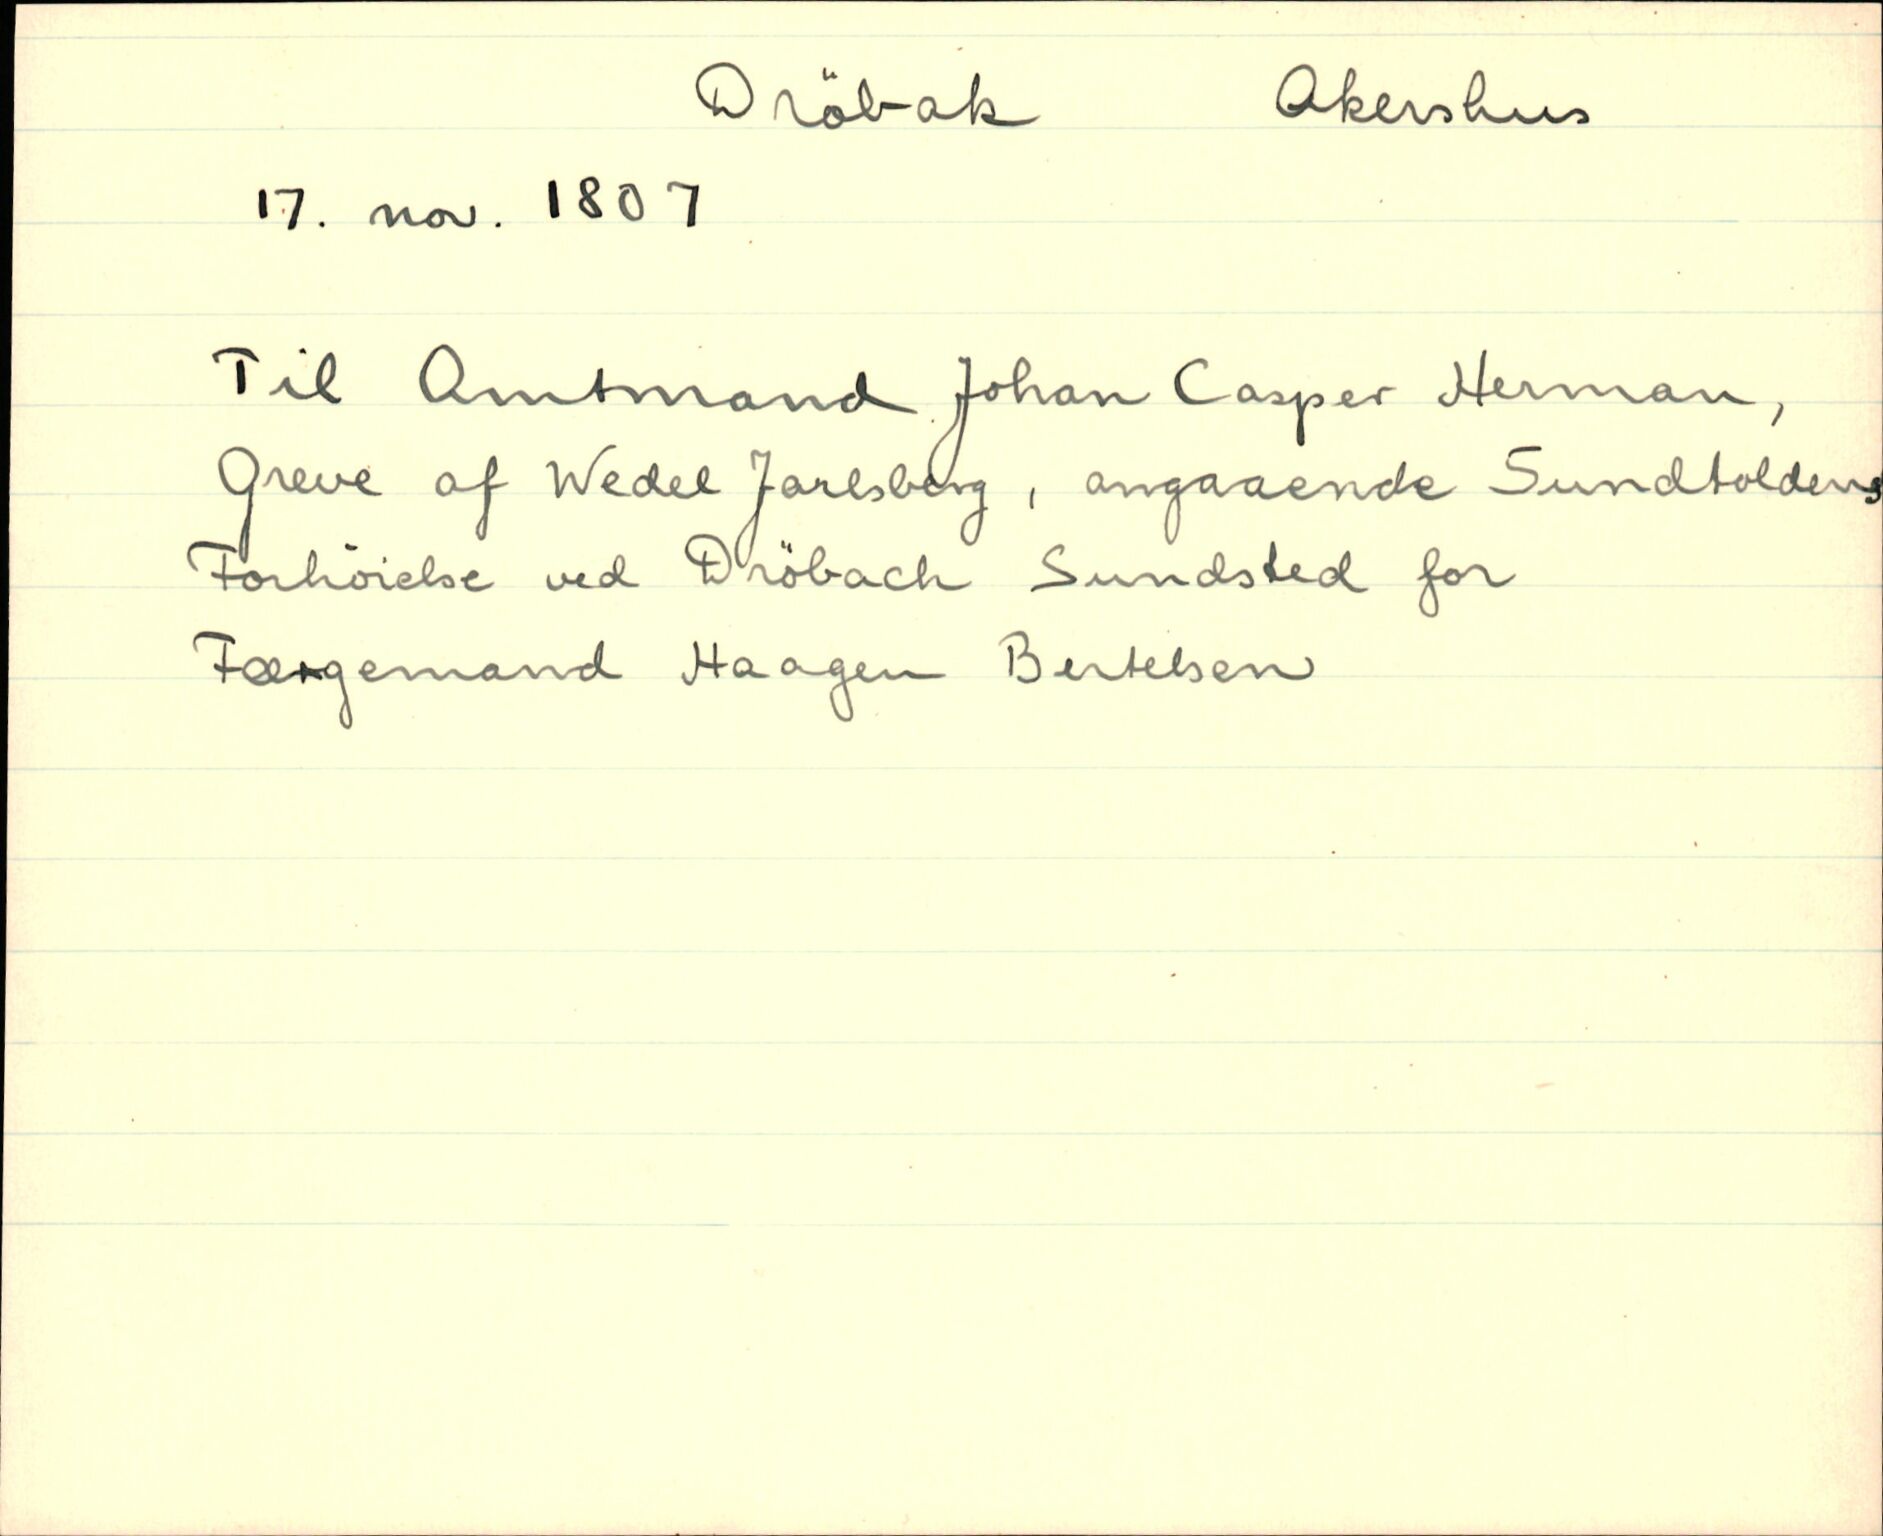 Dröbak Akershus
17. nov. 1807
Til Amtmand Johan Casper Herman,
Greve af Wedel Jarlsberg, angaaende Sundtoldens
Forhöielse ved Dröbach Sundsted for
Færgemand Haagen Bertelsen